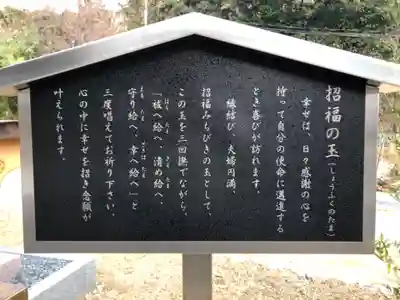 招福の玉(しょうふくのたま)
幸せは、日々感謝の心を
持って自分の使命に邁進する
とき喜びが訪れます。
縁結び、夫婦円満、
招福みちびきの玉として、
この玉を三回撫でながら、
「祓へ給へ、清め給へ、
守り給へ、幸へ給へ」と
三度唱えてお祈り下さい。
心の中に幸せを招き念願が
叶えられます。